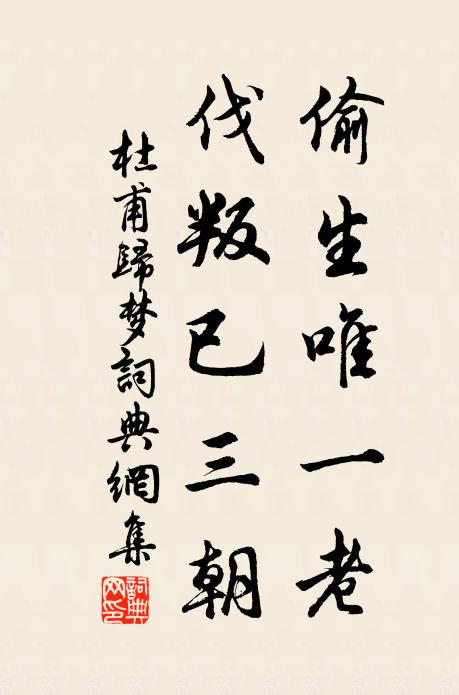 偷生唯一老
伐叛已三朝
杜甫歸梦詞典網集
詞典
网印